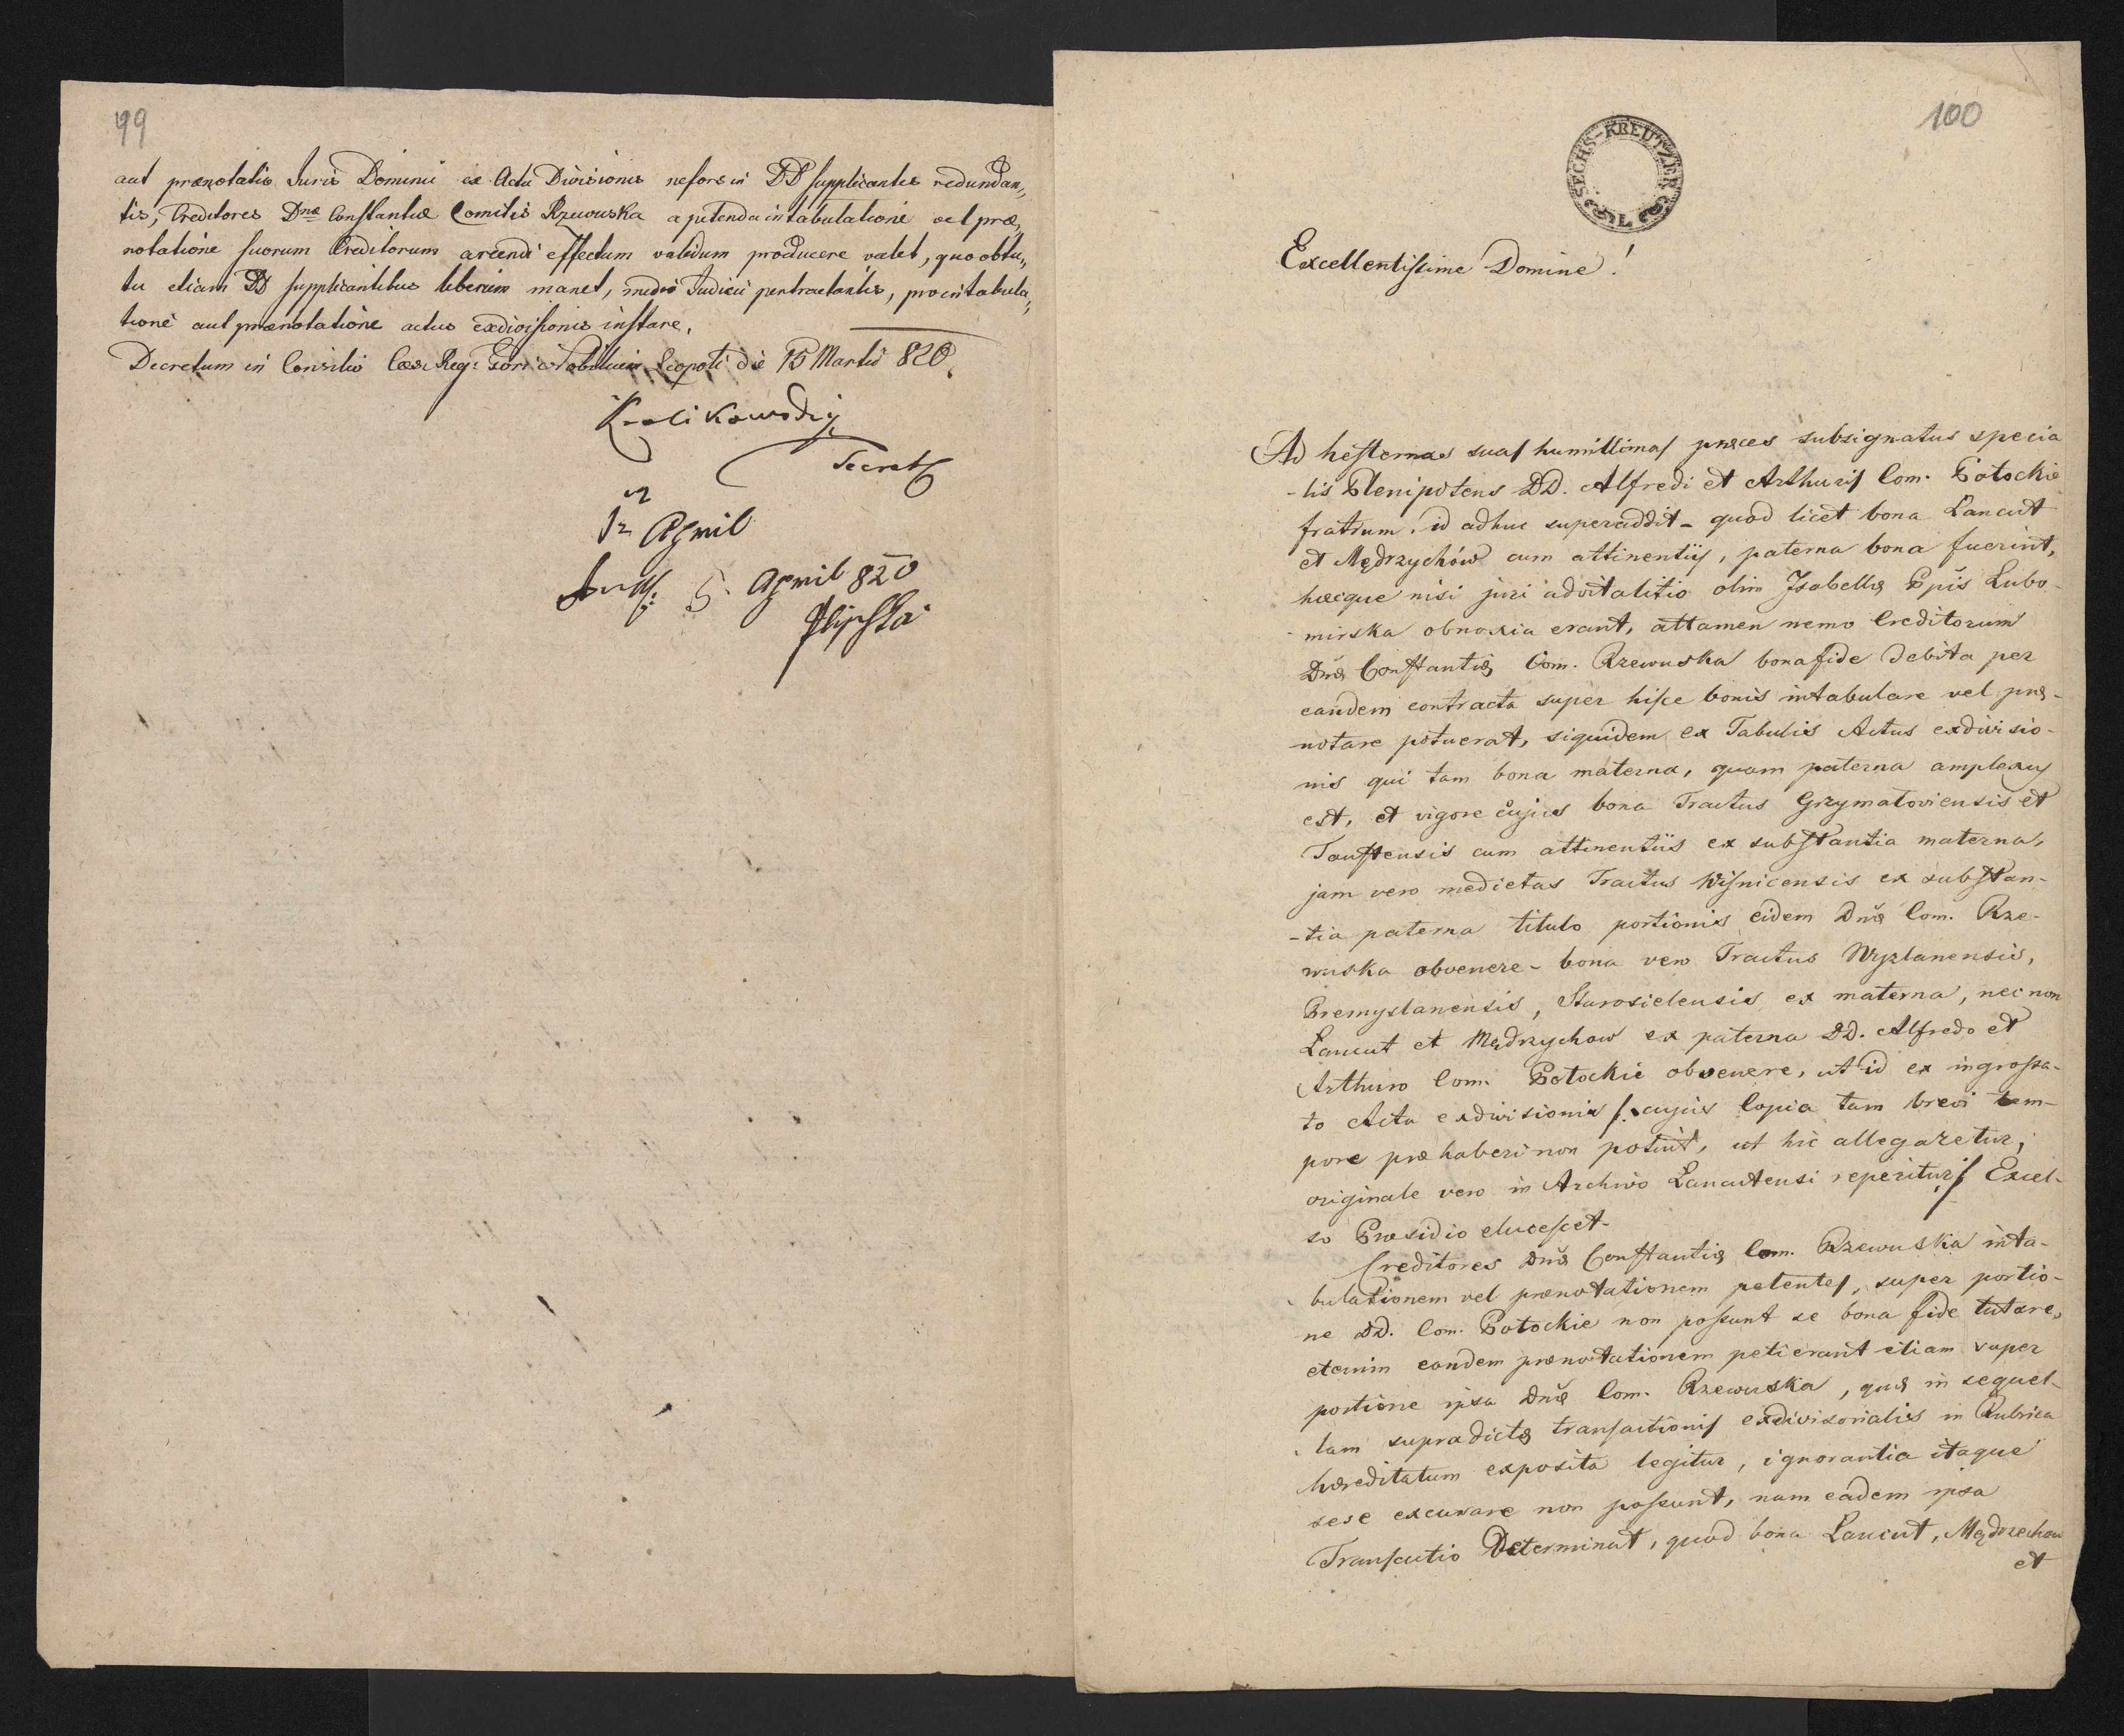 99
aut prænotatio Juris Dominii ex Actu Divisionis nefors in DD supplicantes redundan„
tis, Creditores Dnæ Constantiæ Comitis Rzewuska a petenda intabulatione vel præ„
notatione suorum Creditorum arcendi effectum validum producere valet, quo obtu„
tu etiam DD supplicantibus liberum manet, medio Judicii pertractantis, pro intabula„
tione aut prænotatione actus exdivisionis instare.
Decretum in Consilio Cæs: Reg: Fori Nobilium Leopoli die 15 Martii 820.
Krolikowski
Secret
April
5. April 820
100
SECHS-KREUTZER
Excellentissime Domine!
Ad hesternas suas humillimas præces subsignatus specia
-lis Plenipotens DD. Alfredi et Arthuris Com. Potockie
fratrum id adhuc superaddit- quod licet bona Lancut
et Mędrzychów cum attinentiis, paterna bona fuerint,
hæcque nisi juri advitalitio olim Isabellæ Ppis Lubo-
-mirska obnoxia erant, attamen nemo Creditorum
Dnæ Constantiæ Com. Rzewuska bona fide debita per
eandem contracta super hisce bonis intabulare vel præ-
notare potuerat, siquidem ex Tabulis Actus exdivisio-
nis qui tam bona materna, quam paterna amplexus
est, et vigore cujus bona Tractus Grzymatoviensis et
Toustensis cum attinentiis ex substantia materna,
jam vero medietas Tractus Wisnicensis ex substan-
-tia paterna titulo portionis eidem Dnæ Com. Rze-
wuska obvenere- bona vero Tractus
Premyslanensis, Starosielensis ex materna, nec non
Lancut et Mędrzychow ex paterna DD. Alfredo et
Arthuro Com. Potockie obvenere, ut id ex ingrossa-
to Actu exdivisionis /. cujus Copia tam brevi tem-
pore præhaberi non potuit, ut hic allegaretur,
originale vero in Archivo Lancutensi reperitur ./ Excel-
so Præsidio elucescet-
Creditores Dnæ Constantiæ Com. Rzewuska inta-
bulationem vel prænotationem petentes, super portio-
ne DD. Com. Potockie non possunt se bona fide tutare,
etenim eandem prænotationem petierant etiam super
portione ipsa Dnæ Com. Rzewuska, quæ in sequel-
lam supradictæ transactionis exdivisorialis in Rubrica
hæreditatum exposita legitur, ignorantia itaque
sese excusare non possunt, nam eadem ipsa
Transactio determinat, quod bona Lancut, Mędrzechow
et